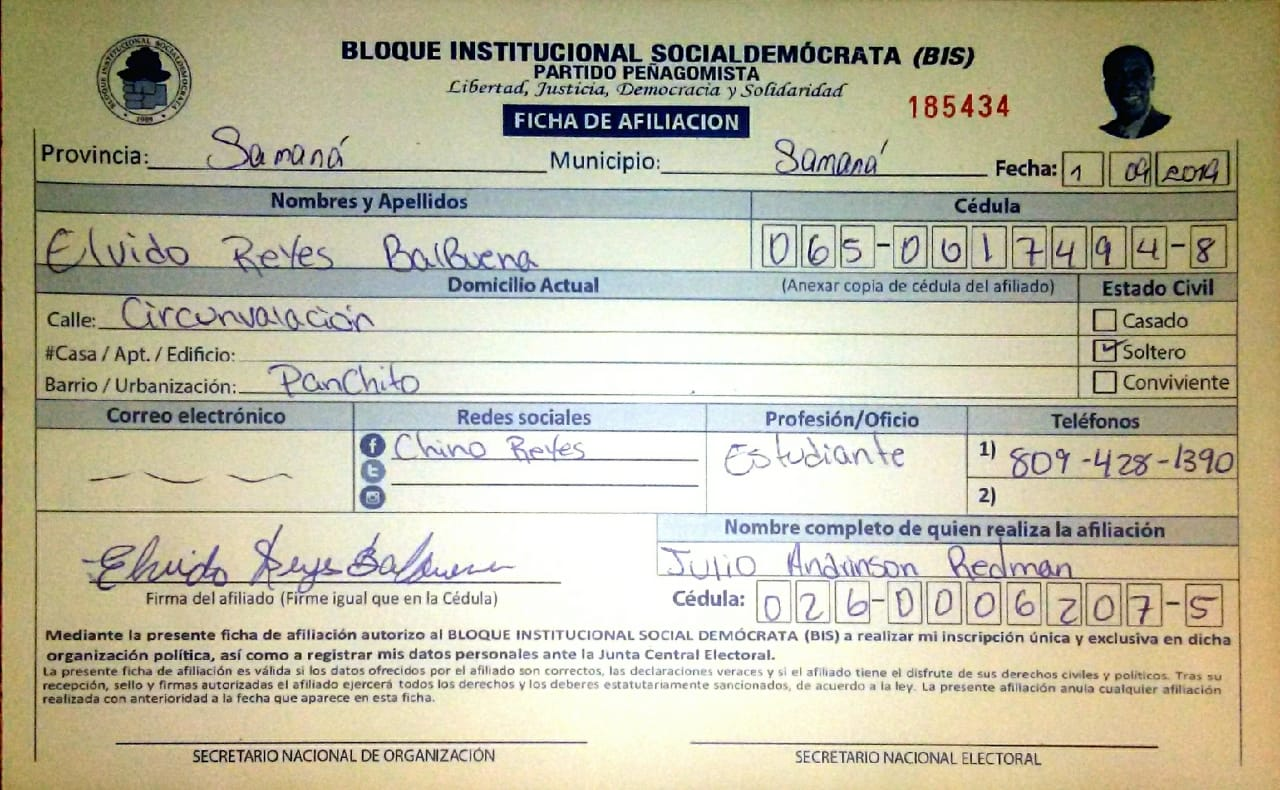 BLOQUE INSTITUCIONAL SOCIALDEMÓCRATA (BIS)
PARTIDO PEÑAGOMISTA
Libertad, Justicia, Democracia y Solidaridad
185434
FICHA DE AFILIACION
Provincia: Samaná Municipio: Samaná Fecha: 1 09 2019
Nombres y Apellidos Cédula
Elvido Reyes BalBuena 065-0017494-8
Domicilio Actual (Anexar copia de cédula del afiliado) Estado Civil
Calle: Circunvalación Casado
#Casa / Apt. / Edificio: Soltero
Barrio / Urbanización: PanChito Conviviente
Correo electrónico Redes sociales Profesión/Oficio Teléfonos
Chino Reyes Estudiante 1) 809-428-1390
2)
Nombre completo de quien realiza la afiliación
Elvido Reyes Balbuena Julio Andrinson Redman
Firma del afiliado (Firme igual que en la Cédula) Cédula: 026-0006207-5
Mediante la presente ficha de afiliación autorizo al BLOQUE INSTITUCIONAL SOCIAL DEMÓCRATA (BIS) a realizar mi inscripción única y exclusiva en dicha
organización política, así como a registrar mis datos personales ante la Junta Central Electoral.
La presente ficha de afiliación es válida si los datos ofrecidos por el afiliado son correctos, las declaraciones veraces y si el afiliado tiene el disfrute de sus derechos civiles y políticos. Tras su
recepción, sello y firmas autorizadas el afiliado ejercerá todos los derechos y los deberes estatutariamente sancionados, de acuerdo a la ley. La presente afiliación anula cualquier afiliación
realizada con anterioridad a la fecha que aparece en esta ficha.
SECRETARIO NACIONAL DE ORGANIZACIÓN SECRETARIO NACIONAL ELECTORAL